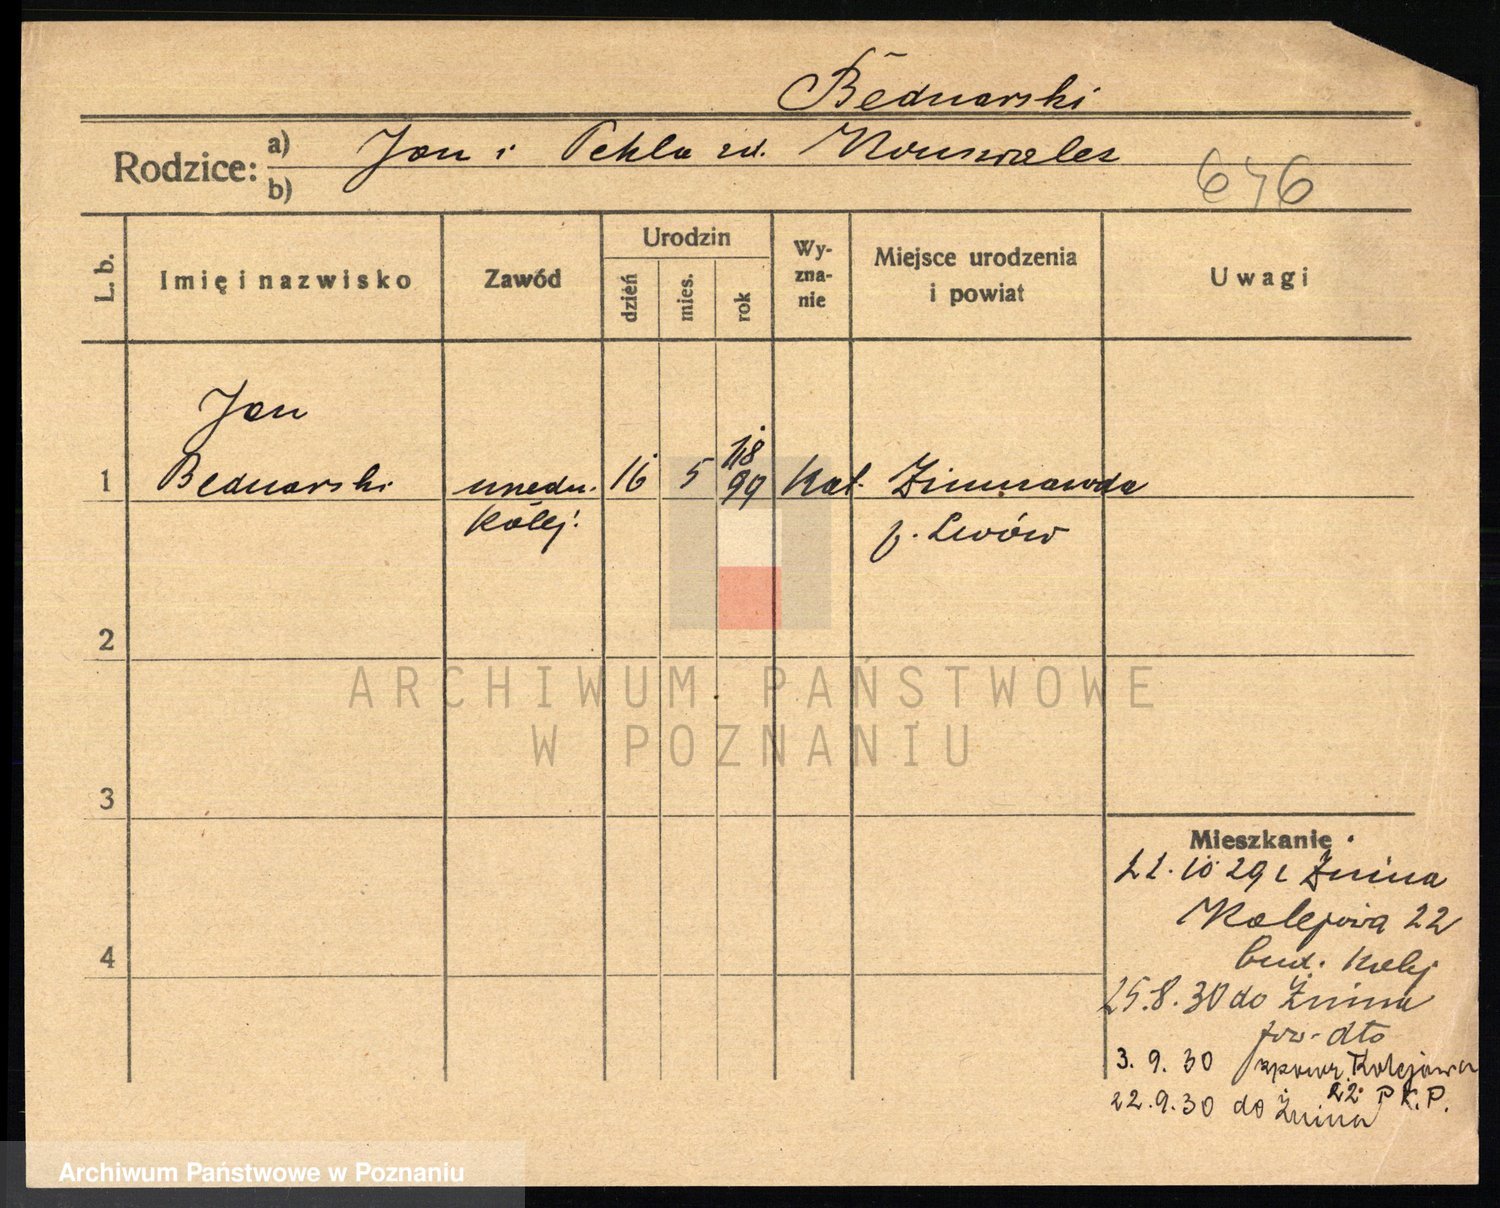 Bednarski
Rodzice: a) Jan i Tekla zd.
b)
646
L. b. Imię i nazwisko Zawód Urodzin dzień mies. rok Wy-zna-nie Miejsce urodzenia i powiat Uwagi
Jan
1 Bednarski urzędn. 16 5 1899 Kat. Zimnawoda
Kolej. p. Lwów
2
3
Mieszkanie
22.10 29 z Żnina
Kolejowa 22
bud. Kolej
4
25.8.30 do Żnina
pow. dto
3. 9. 30 Kolejowa
22 P.K.P.
22.9.30 do Żnina
ARCHIWUM PAŃSTWOWE
W POZNANIU
Archiwum Państwowe w Poznaniu